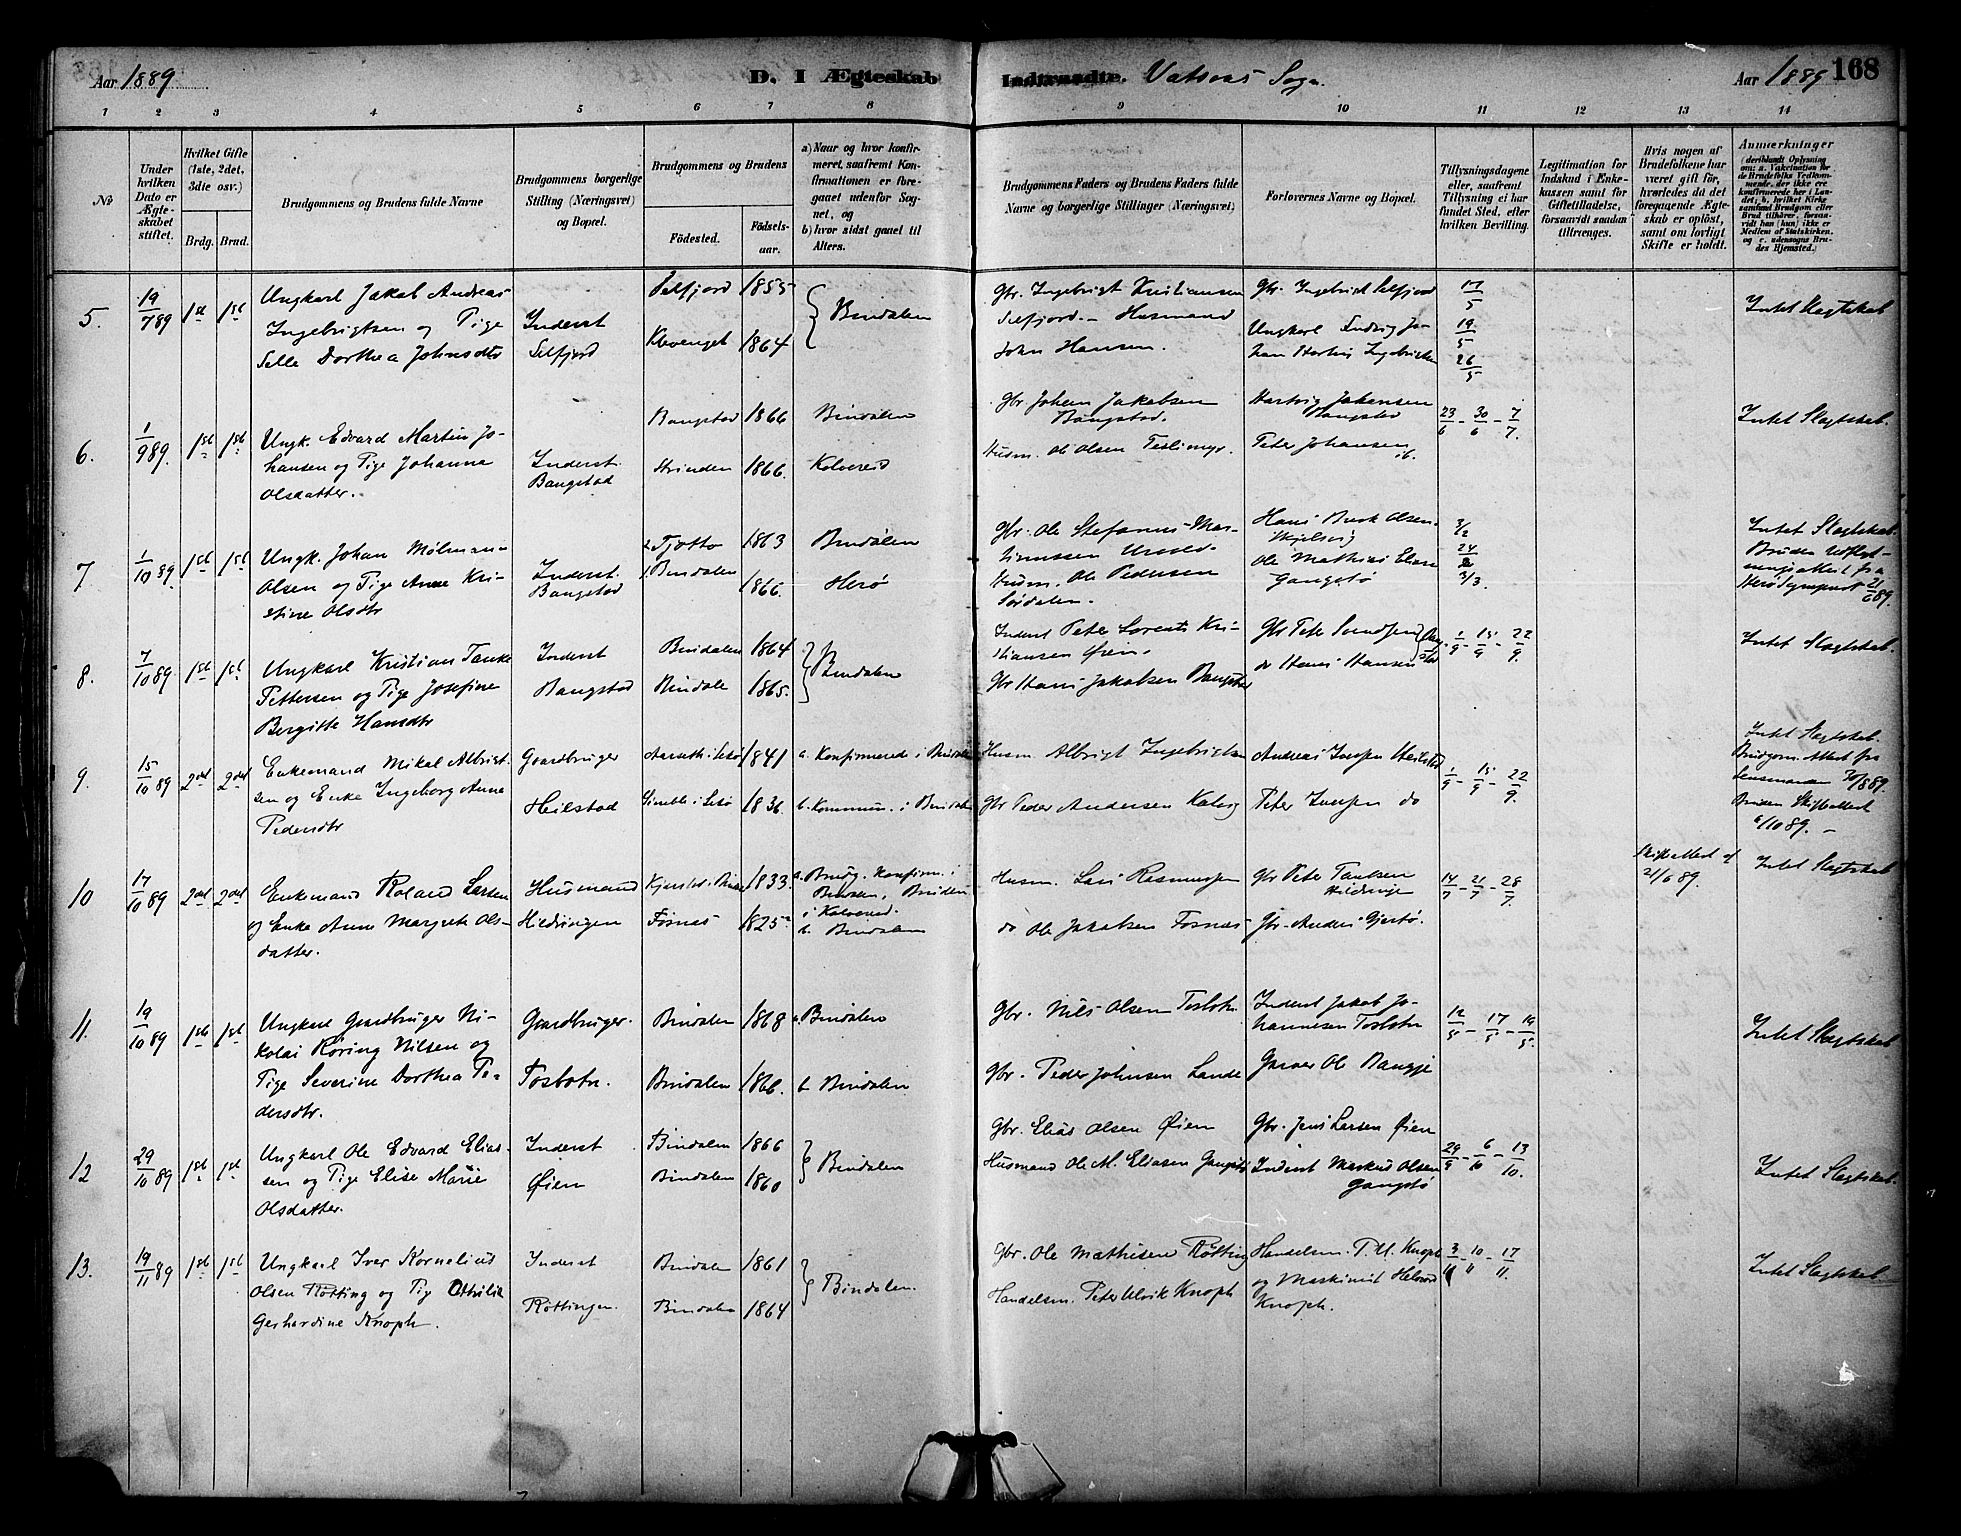 Aar 1889
D. I Ægteskab Indtraadte. Vatsaas Sogn.
Aar 1889 168
1 2 3 4 5 6 7 8 9 10 11 12 13 14
No
Under hvilken Dato er Ægteskabet stiftet.
Hvilket Gifte (1ste, 2det, 3die osv.)
Brdg. Brud.
Brudgommens og Brudens fulde Navne
Brudgommens borgerlige Stilling (Næringsvei) og Bopæl.
Brudgommens og Brudens
Födested.
Födsels-aar.
a) Naar og hvor konfirmeret, saafremt Konfirmationen er foregaaet udenfor Sognet, og
b) hvor sidst gaaet til Alters.
Brudgommens Faders og Brudens Faders fulde Navne og borgerlige Stillinger (Næringsvei)
Forlovernes Navne og Bopæl.
Tillysningsdagene eller, saafremt Tillysning ei har fundet Sted, efter hvilken Bevilling.
Legitimation for Indskud i Enkekassen samt for Giftetilladelse, forsaavidt saadan tiltrænges.
Hvis nogen af Brudefolkene har været gift för, hvorledes da det foregaaende Ægteskab er oplöst, samt om lovligt Skifte er holdt.
Anmerkninger
(deriblandt Oplysning om: a. Vakcination for de Brudefolks Vedkommende, der ikke ere konfirmerede her i Landet; b. hvilket Kirkesamfund Brudgom eller Brud tilhører, forsaavidt han (hun) ikke er Medlem af Statskirken, og c. udensogns Brudes Hjemsted.)
5. 19/7 89 1st 1st
Ungkarl Jakob Andreas
Ingebrigtsen og Pige
Selle Dorthea Johnsdtr
Inderst
Selfjord
Selfjord 1855
Klevenget 1864
Bindalen
Gbr. Ingebrigt Kristiansen
Selfjord. - Husmand
John Hansen.
Gbr. Ingebrigt Selfjord
Ungkarl Ludvig Jo-
han Hartvig Ingebrigtsen
19/5
26/5
Intet Slagtskab
6. 1/9 89. 1st 1st
Ungk. Edvard Martin Jo-
hansen og Pige Johanna
Olsdatter.
Inderst.
Bangstad
Bangstad 1866
Strinden 1866.
Bindalen
Kolvereid
Gbr. Johan Jakobsen
Bangstad.
Husm. Ole Olsen
Hartvig Johansen
Bangstad
Peter Johansen ib.
23/6 - 30/6 - 7/7.
Intet Slagtskab.
7 1/10 89. 1st 1st
Ungk. Johan
Olsen og Pige Anne Kri-
stine Olsdtr
Inderst.
Bangstad
Tjøtto 1863
Bindalen 1866.
Bindalen
Herø
Gbr. Ole Stefanus Mar-
Husm. Ole Pedersen
Sørdalen.
Hans Olsen
Ole Mathias Elias
Gangstø
3/2
24/2
3/3.
Intet Slagtskab.
Bruden Udflyt-
ningsattest fra
8. 7/10 89 1st 1st
Ungkarl Kristian Tanke
Pettersen og Pige Josefine
Bergitte Hansdtr
Inderst
Bangstad
Bindalen 1864
Bindale 1865.
Bindalen
Inderst Peter Lorents Kri-
stiansen Øien.
Gbr Hans Jakobsen Bangstad
Gbr Peter Svendsen
do Hans Hansen
1/9 - 15/9 - 22/9.
Intet Slagtskab.
9. 15/10 89 2det 2det
Enkemand Mikal Albrigt-
sen og Enke Ingeborg Anna
Pedersdtr
Gaardbruger
Heilstad
1841
1836.
a. Konfirmerede i Bindalen
b. Kommun. i Bindalen
Husm. Albrigt Ingebrigtsen
Gbr Peder Andersen Kalvig
Andreas Iversen Heilstad
Peter Iversen do
1/9 - 15/9 - 22/9.
Intet Slagtskab.
Brudgom. Attest fra
Lensmanden 30/8 89.
Bruden Skifteattest
/10 89. -
10 17/10 89 2det 2det
Enkemand Roland Larsen
og Enke Anne Margrete Ols-
datter.
Husmand
Hildringen
1833.
Fosnes 1825
a. Brudg. Konfirm. i
Bindalen, Bruden
i Kolvereid.
b. Bindalen
Husm. Lars Rasmussen
do Ole Jakobsen Fosnes
Gbr Peter Paulsen
Hildringen
Gbr. Anders Gjerstø.
14/7 - 21/7 - 28/7.
Skifteattest af
21/6 89.
Intet Slagtskab
11. 19/10 89 1st 1st
Ungkarl Gaardbruger Ni-
kolai Røring Nilsen og
Pige Severine Dorthea Pe-
dersdtr.
Gaardbruger.
Tosbotn.
Bindalen 1868
Bindalen 1866.
a. Bindalen
b. Bindalen
Gbr. Nils Olsen Tosbotn.
Gbr. Peder Johnsen Lande
Inderst Jakob Jo-
hannesen Tosbotn
Garver Ole Bangje
12/5 - 17/5 - 19/5.
Intet Slagtskab
12 29/10 89 1st 1st
Ungkarl Ole Edvard Elias-
sen og Pige Elise Marie
Olsdatter.
Inderst
Øien
Bindalen 1866
Bindalen 1860
Bindalen
Gbr. Elias Olsen Øien
Husmand Ole M. Eliasen Gangstø
Gbr. Jens Larsen Øien
Inderst Markus Olsen
Gangstø
29/9 - 6/10 - 13/10.
Intet Slagtskab.
13. 19/11 89 1st 1st
Ungkarl Iver Kornelius
Olsen Røtting og Pig Othilie
Gerhardine Knoph.
Inderst
Røttingen.
Bindalen 1861
Bindalen 1864
Bindalen.
Gbr. Ole Mathisen Røtting
Handelsm. Peter Ulvik Knoph
Handelsm. P. U. Knoph
og Maskinist Helvard
Knoph.
3/11 - 10/11 - 17/11.
Intet Slagtskab.